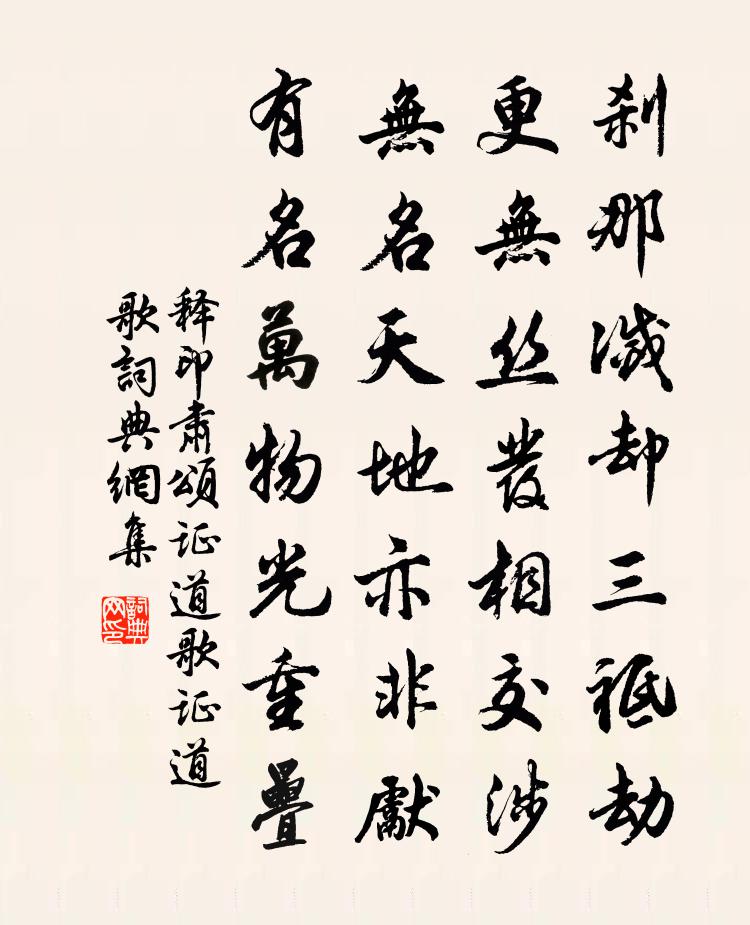 刹那滅却三祗劫
更無丝發相交涉
無名天地亦非獻
有名萬物光重疊
释印肃頌证道歌证道
歌詞典網集
詞典
网印